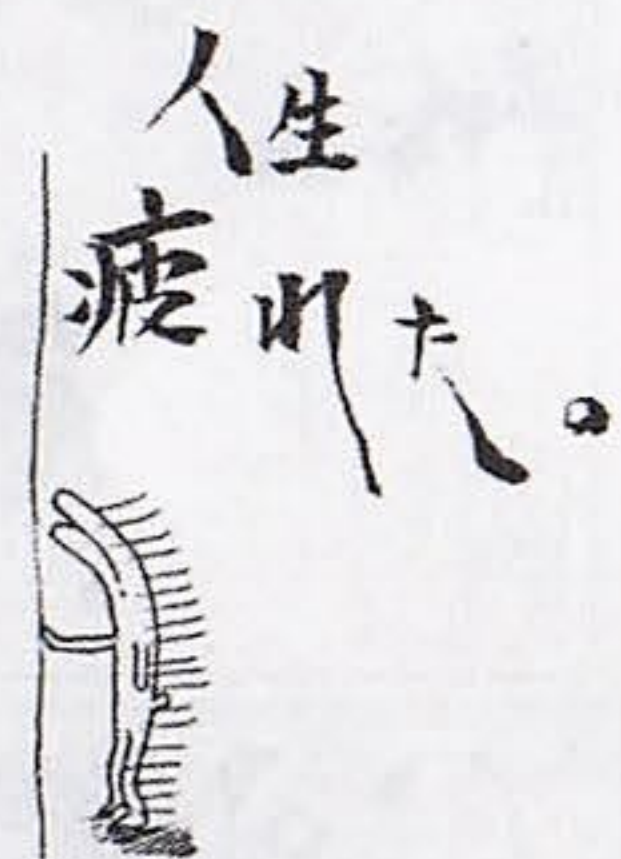 人生
疲れた。